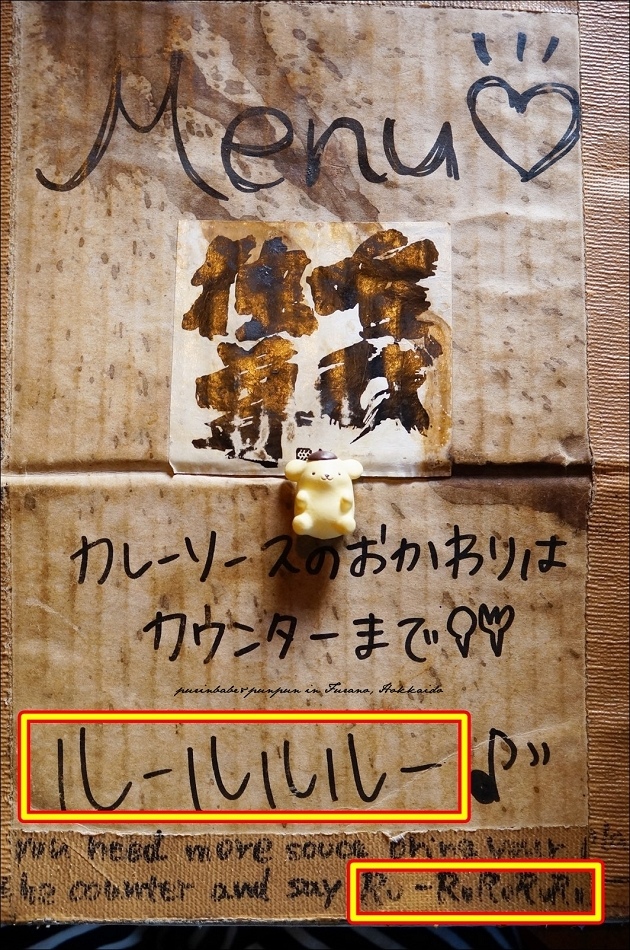 Menu
唯我
独尊
カレーソースのおかわりは
カウンターまで
purinbabe & punpun in Furano, Hokkaido
ルールルルー♪
you need more souce bring your
the counter and say Ru-RuRuRuRu